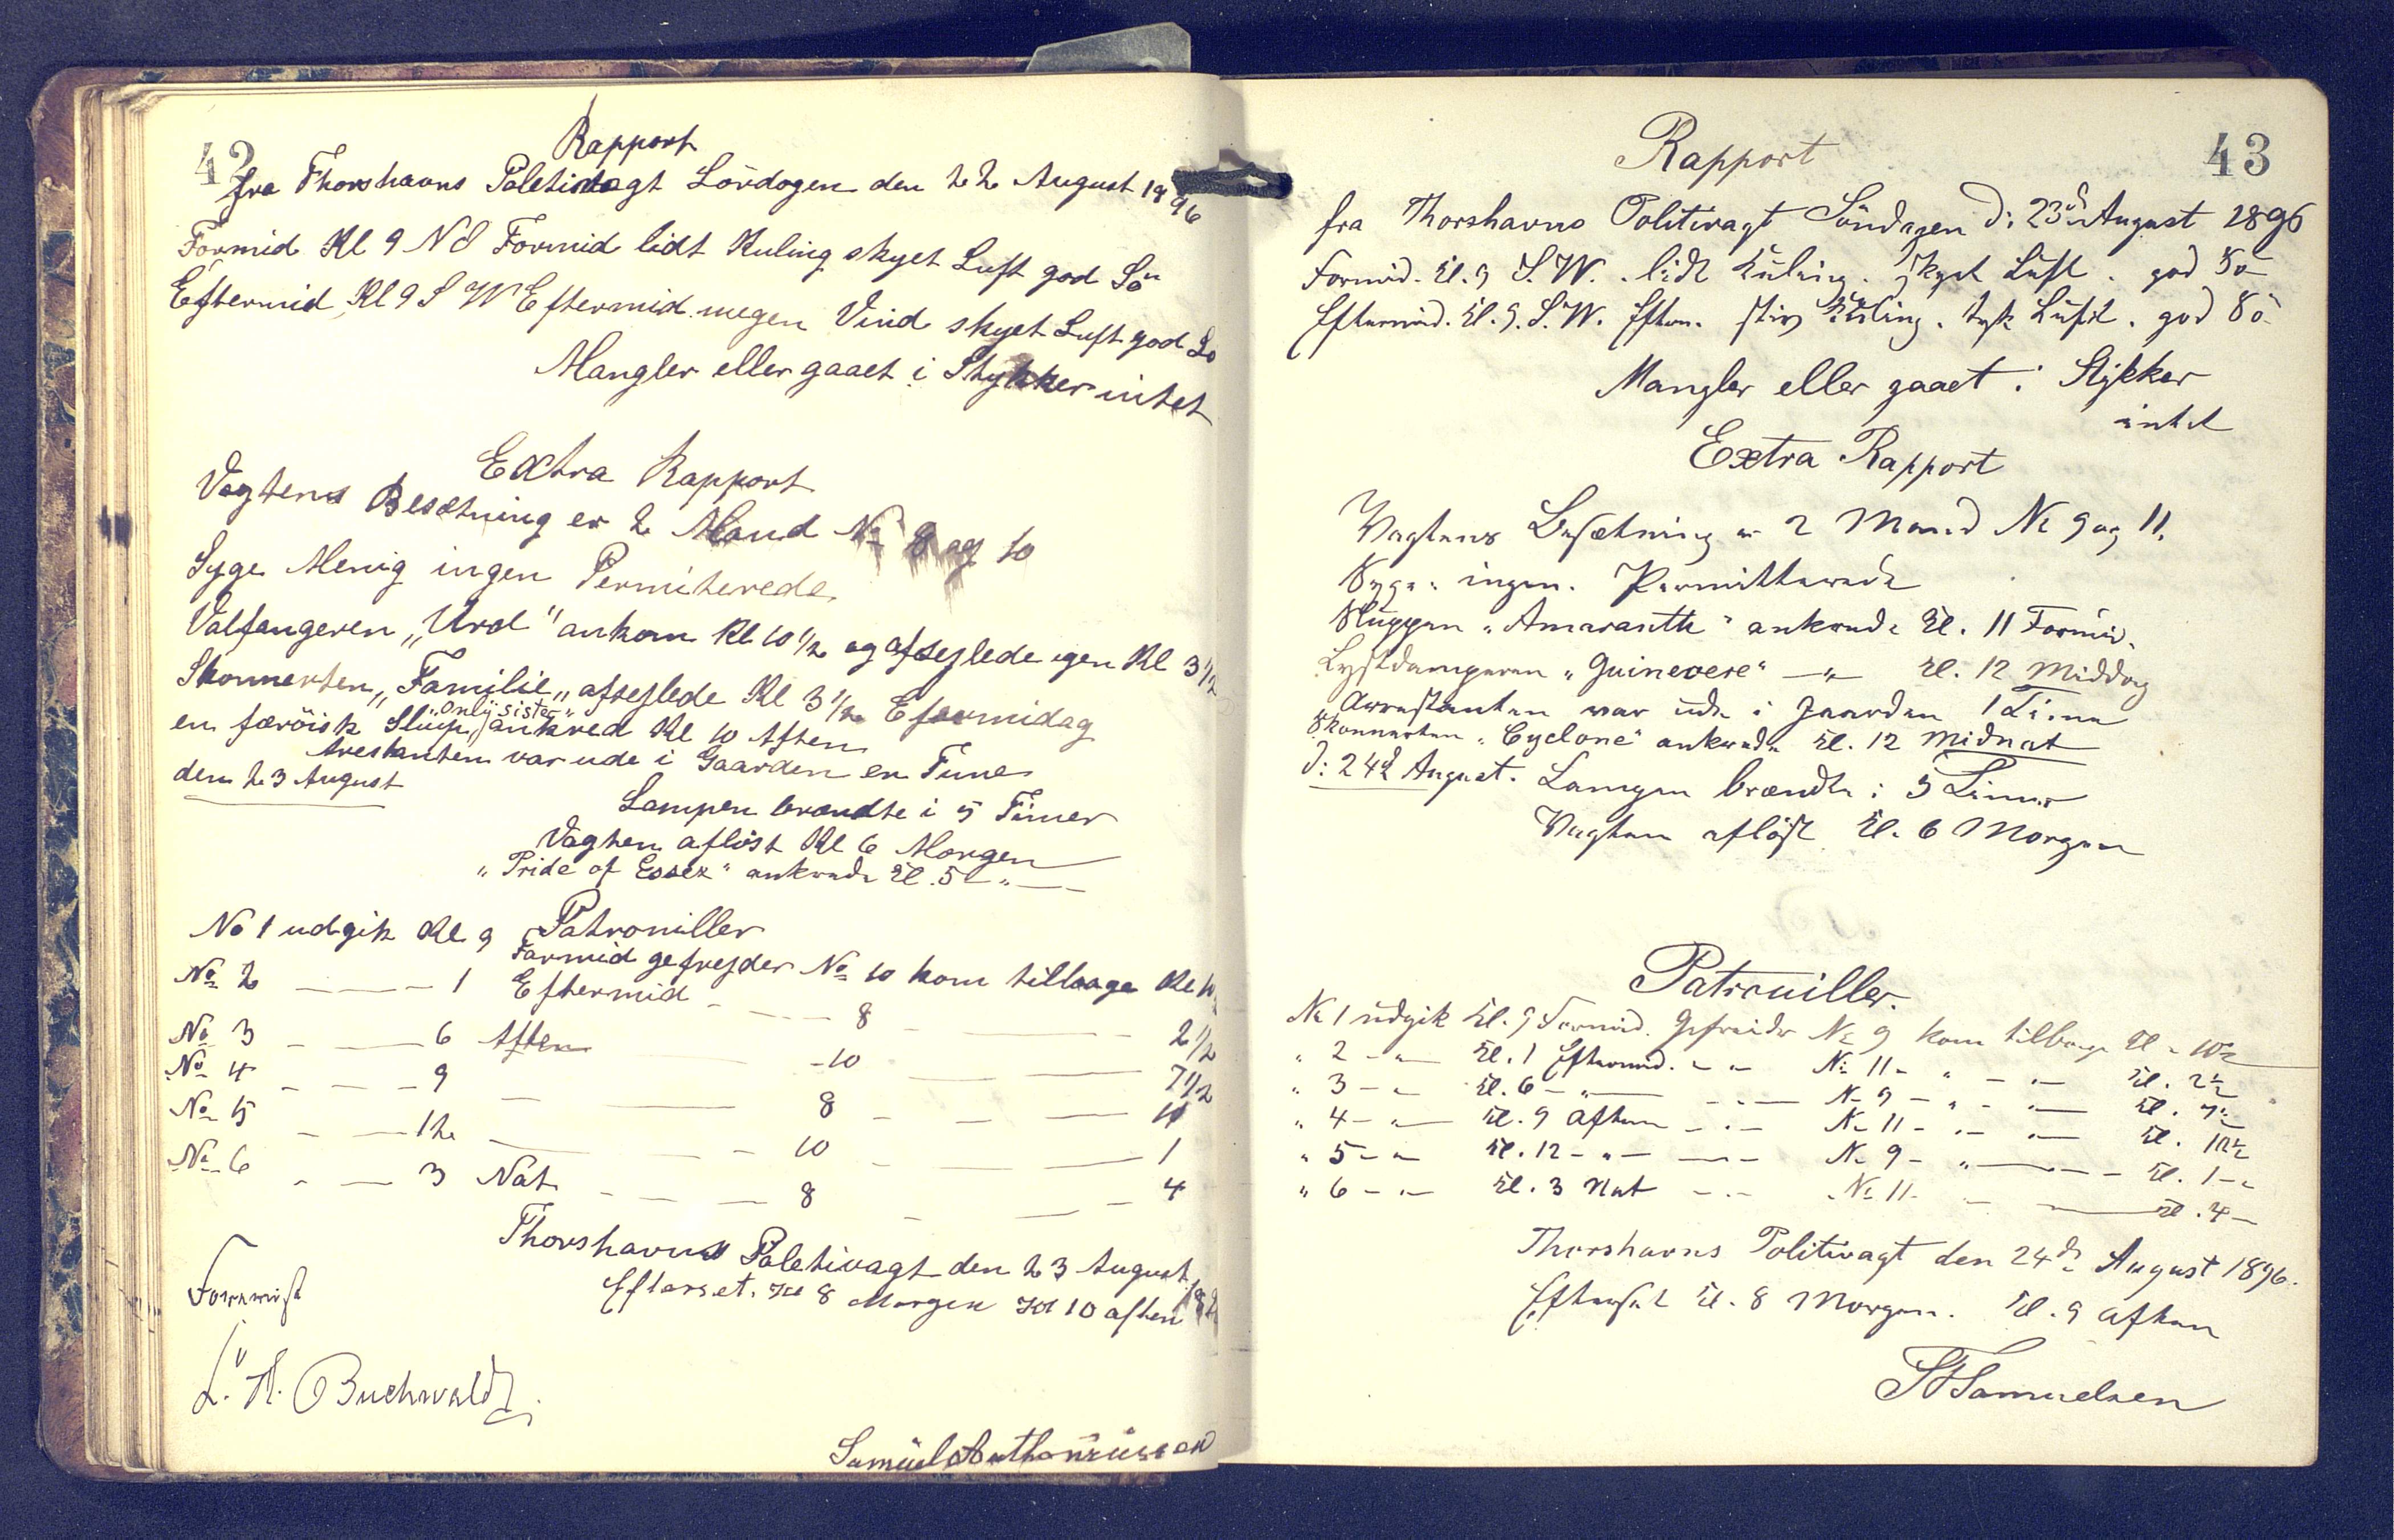 42
Rapport
fra Thorshavns Poletivagt Lördagen den 22 August 1896
Formid Kl 9 NO Formid lidt Kuling skyet Luft god Sö
Eftermid Kl 9 S W Eftermid megen Vind skyet Luft god Sö
Mangler eller gaaet i Stykker intet
Extra Rapport
Vagtens Besætning er 2 Mand No 8 og 10
Syge Menig ingen Permiterede
Valfangeren „Urd" ankom Kl 10 1/2 og afsejlede igen Kl 3 1/2
Skonnerten „Familie„ afsejlede Kl 3 1/2 Efermidag
en færöisk Slüp „Only sister" ankred Kl 10 Aften
Arestanten var ude i Gaarden en Time
den 23 August
Lampen brændte i 5 Timer
Vagten aflöst Kl 6 Morgen
„Pride of Essex" ankrede Kl. 5 — „ —
Patrouiller
No 1 udgik Kl 9 Formid gefrejder No 10 kom tilbage Kl 10
No 2 — — 1 Eftermid — — 8 — — 2 1/2
No 3 — — 6 Aften — 10 — — 7 1/2
No 4 — — 9 — — 8 — — 11
No 5 — — 12 — — 10 — — 1
No 6 — — 3 Nat — — 8 — — 4
Thorshavns Poletivagt den 23 August
Efterset. Kl 8 Morgen Kl 10 aften
Forevist
L. A. Buchwaldt
Samüel Anthoniüsen
43
Rapport
fra Thorshavns Politivagt Söndagen d: 23d August 1896
Formid. Kl. 9 S.W. lidt Küling. skyet Lüft. god Sö
Eftermid. Kl. 9. S.W. Efterm. stiv Küling. tyk Lüft. god Sö
Mangler eller gaaet i Stykker
intet
Extra Rapport
Vagtens Besætning er 2 Mand No 9 og 11.
Syge: ingen. Permitterede
Sluppen „Amaranth" ankrede Kl. 11 Formid.
Lystdamperen „Guinevere" — „ — Kl. 12 Middag
Arrestanten var ude i Gaarden 1 Time
Skonnerten „Cyclone" ankrede Kl. 12 Midnat
d: 24d August. Lampen brændte i 5 Timer
Vagten aflöst Kl. 6 Morgen
Patrouiller.
No 1 udgik Kl. 9 Formid. Gefreider No 9 kom tilbage Kl. 10 1/2
„ 2 — „ — Kl. 1 Eftermid. — „ — No 11 — „ — „ — Kl. 2 1/2
„ 3 — „ — Kl. 6 — „ — — „ — No 9 — „ — „ — Kl. 7 1/2
„ 4 — „ — Kl. 9 Aften — „ — No 11 — „ — „ — Kl. 10 1/2
„ 5 — „ — Kl. 12 — „ — — „ — No 9 — „ — — Kl. 1 —
„ 6 — „ — Kl. 3 Nat — „ — No 11 — — Kl. 4 —
Thorshavns Politivagt den 24d August 1896.
Efterset Kl. 8 Morgen. Kl. 9 Aften
Samuelsen